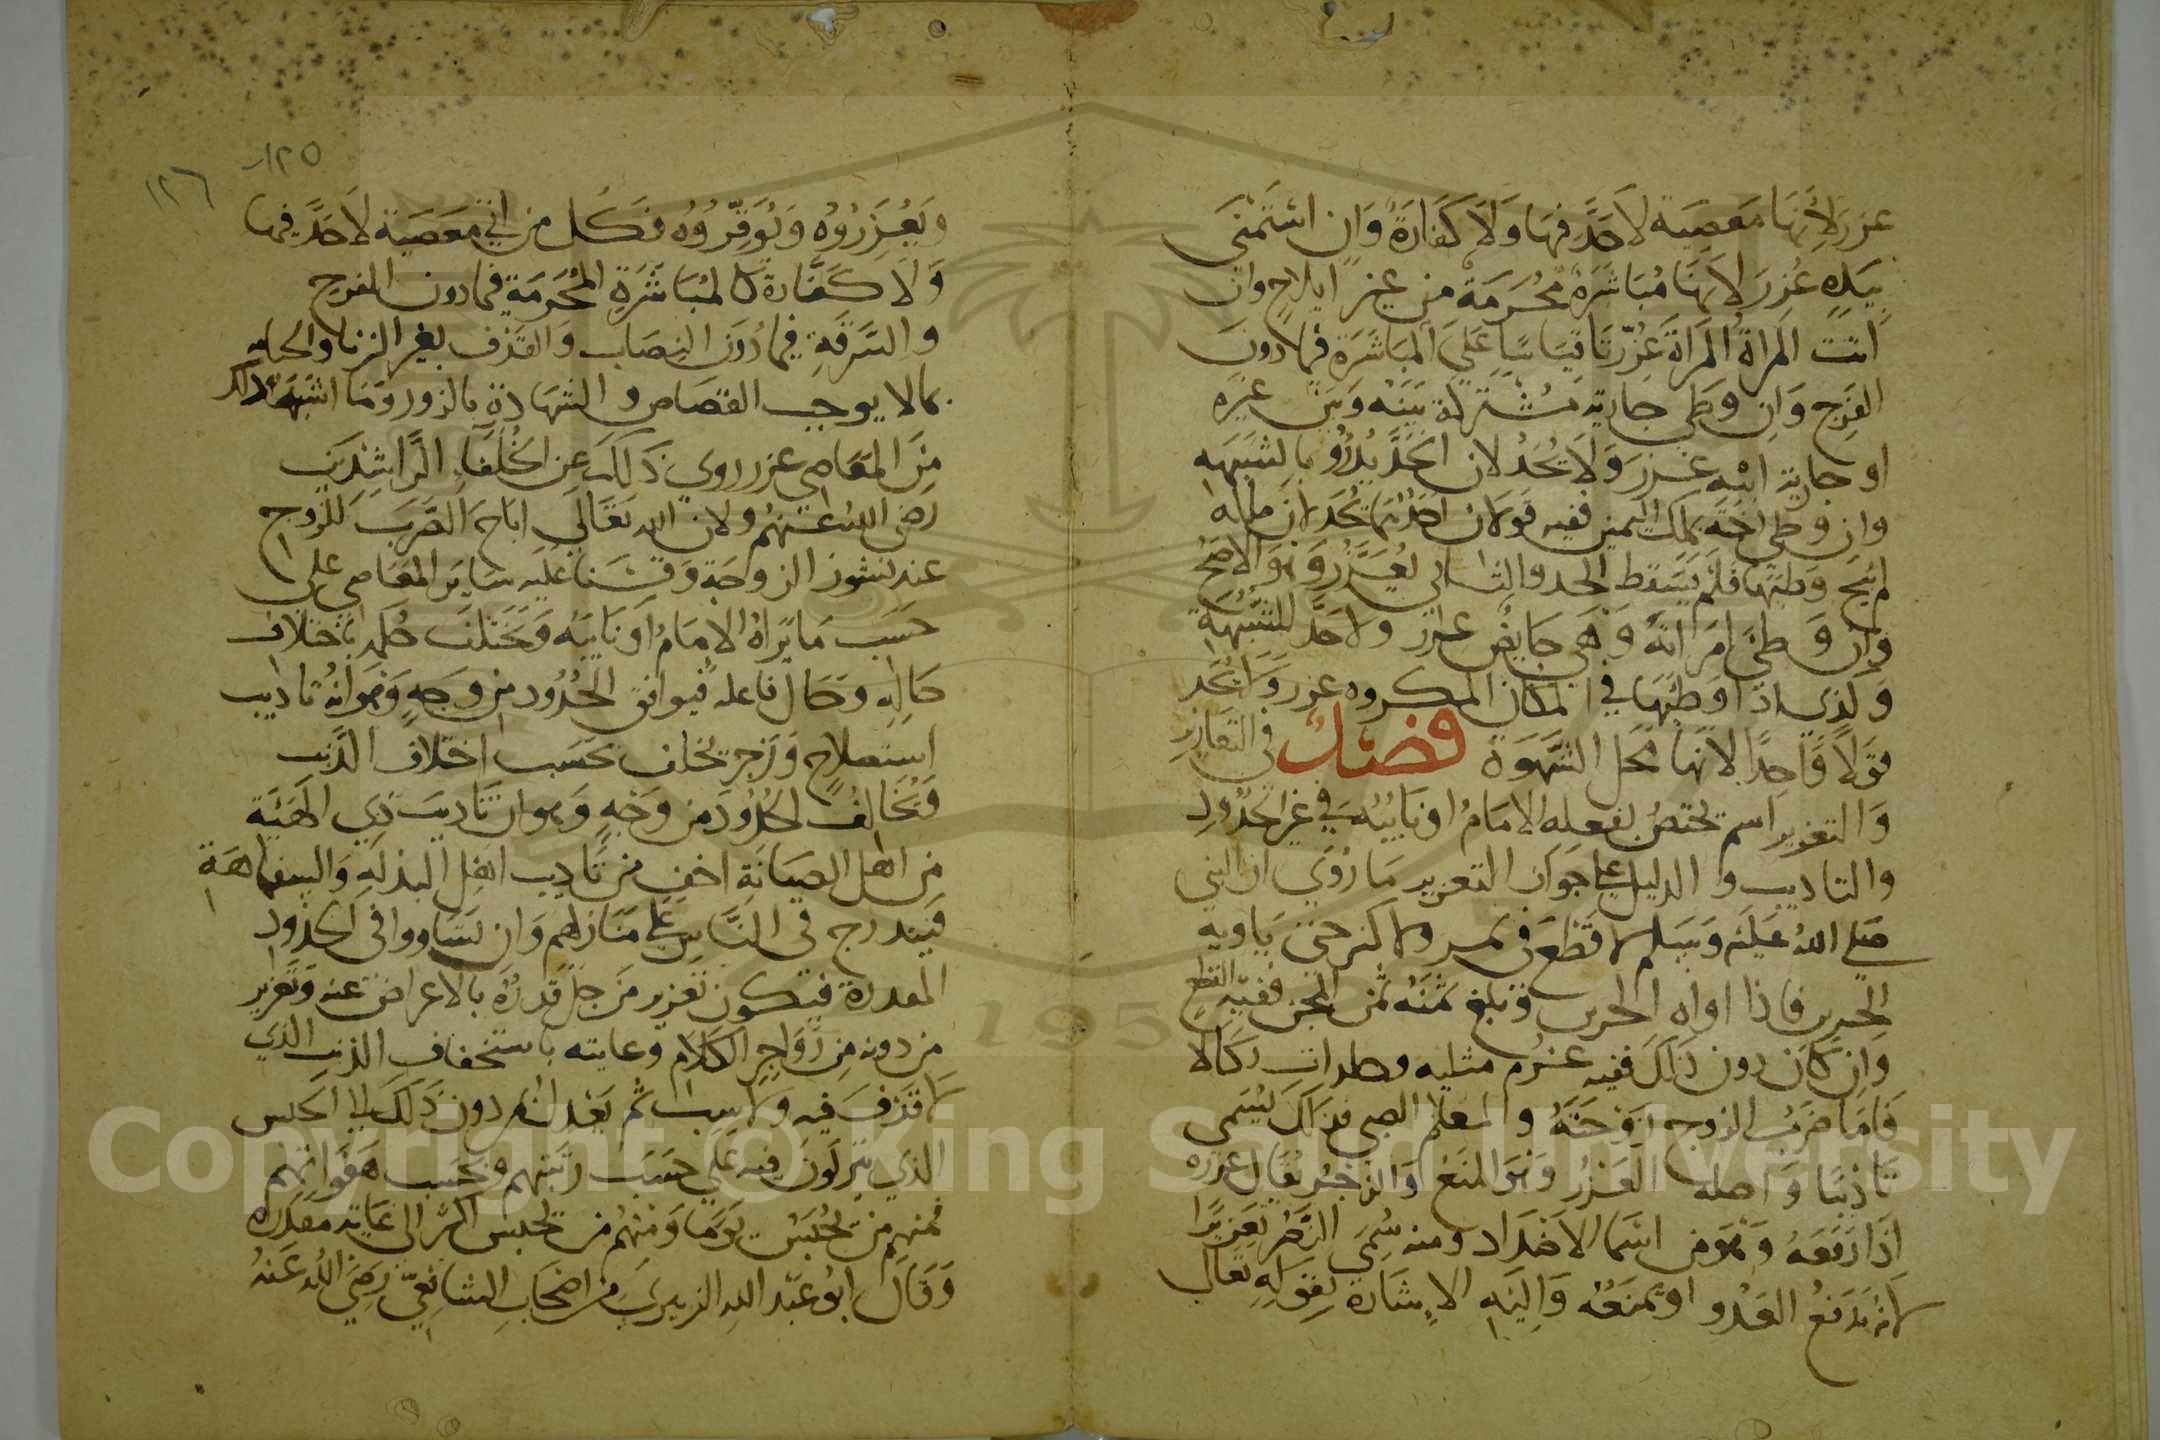 عزر لأنها معصية لا حد فيها ولا كفارة وان استمنى
بيده عزر لأنها مباشرة محرمة من غير ايلاج وان
اتت المراة المراة عزرتا قياسا على المباشرة فيما دون
الفرج وان وطي جارية مشتركة بينه وبين غيره
او جارية ابنه عزر ولا يحد لان الحد يدرؤ بالشبهه
وان وطي اخته بملك اليمين ففيه قولان احدهما يحد لان ملكه
لم يبح وطئها فلم يسقط الحد والثاني يعزر وهو الاصح
وان وطئ امراته وهي حايض عزر ولا حد للشبهة
والذي اذا وطئها في المكان المكروه عزر ولا يحد
قولا واحدا لانها محل الشهوة فصل في التعازير
والتعزير اسم يختص بفعله الامام او نايبه في غير الحدود
والتاديب والدليل على جواز التعزير ما روي ان النبي
صلى الله عليه وسلم لا قطع في ثمر ولا كثر حتى ياويه
الجرين فاذا اواه الجرين وبلغ ثمنه ثمن المجن ففيه القطع
وان كان دون ذلك ففيه غرم مثليه وجلدات نكالا
فاما ضرب الزوج زوجته والمعلم الصبي فذلك يسمى
تاديبا واصله العزر وهو المنع والزجر يقال عزره
اذا دفعه وهو من اسما الاضداد ومنه سمي النصر تعزيرا
لانه يدفع العدو او يمنعه واليه الاشارة بقوله تعالى
١٢٥
١٢٦
ويعزروه ويوقروه فكل من اتى معصية لا حد فيها
ولا كفارة كالمباشرة المحرمة فيما دون الفرج
والسرقة فيما دون النصاب والقذف بغير الزنا والجنايه
بما لا يوجب القصاص والشهادة بالزور وما اشبه ذلك
من المعاصي عزر روي ذلك عن الخلفاء الراشدين
رضي الله عنهم ولان الله تعالى اباح الضرب للزوج
عند نشوز الزوجة وقسنا عليه ساير المعاصي على
حسب ما يراه الامام او نايبه ويختلف حكمه باختلاف
حاله وحال فاعله فيوافق الحدود من وجه وهو انه تاديب
استصلاح وزجر يختلف بحسب اختلاف الذنب
ويخالف الحدود من وجه وهو ان تاديب ذي الهيئة
من اهل الصيانة اخف من تاديب اهل البذله والسفاهة
فيتدرج في الناس على منازلهم وان تساووا في الحدود
المقدرة فيكون تعزير من جل قدره بالاعراض عنه وتعزير
من دونه من زواجر الكلام وغايته باستخفاف الذنب الذي
لا قذف فيه ولا سب ثم يعدل لمن دون ذلك الى الحبس
الذي ينزلون فيه على حسب رتبهم وبحسب هفواتهم
فمنهم من يحبس يوما ومنهم من يحبس اكثر الى غاية مقدره
وقال ابو عبد الله الزبيري من اصحاب الشافعي رضي الله عنه
Copyright © King Saud University